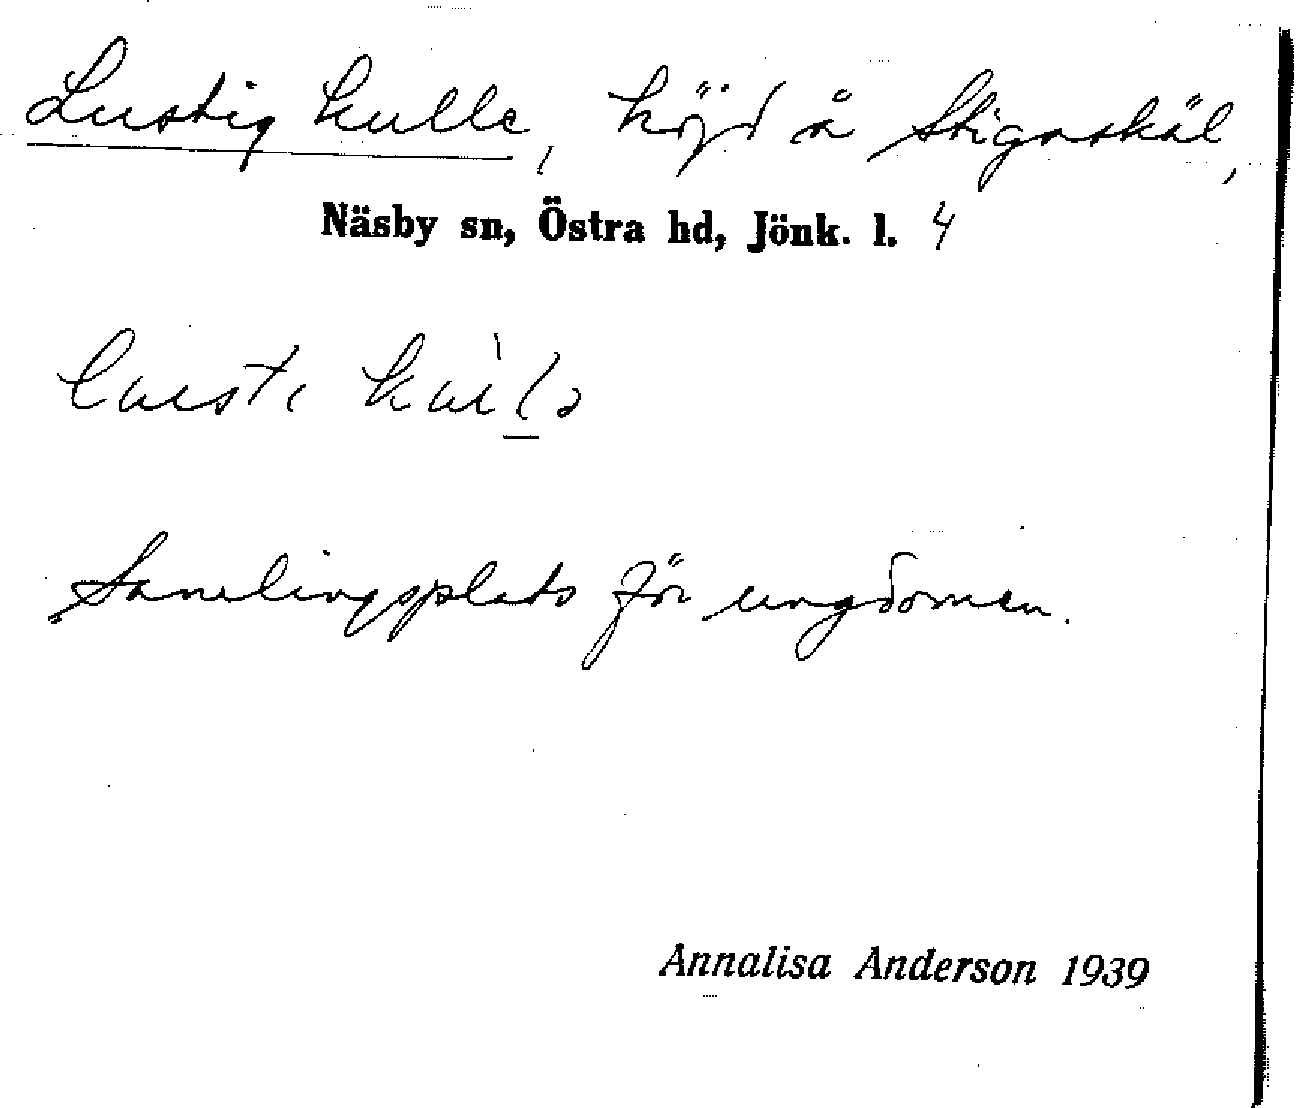 Lustig kulle, höjd å Stigaskäl,
Näsby sn, Östra hd, Jönk. l. 4
Samlingsplats för ungdomen.
Annalisa Anderson 1939